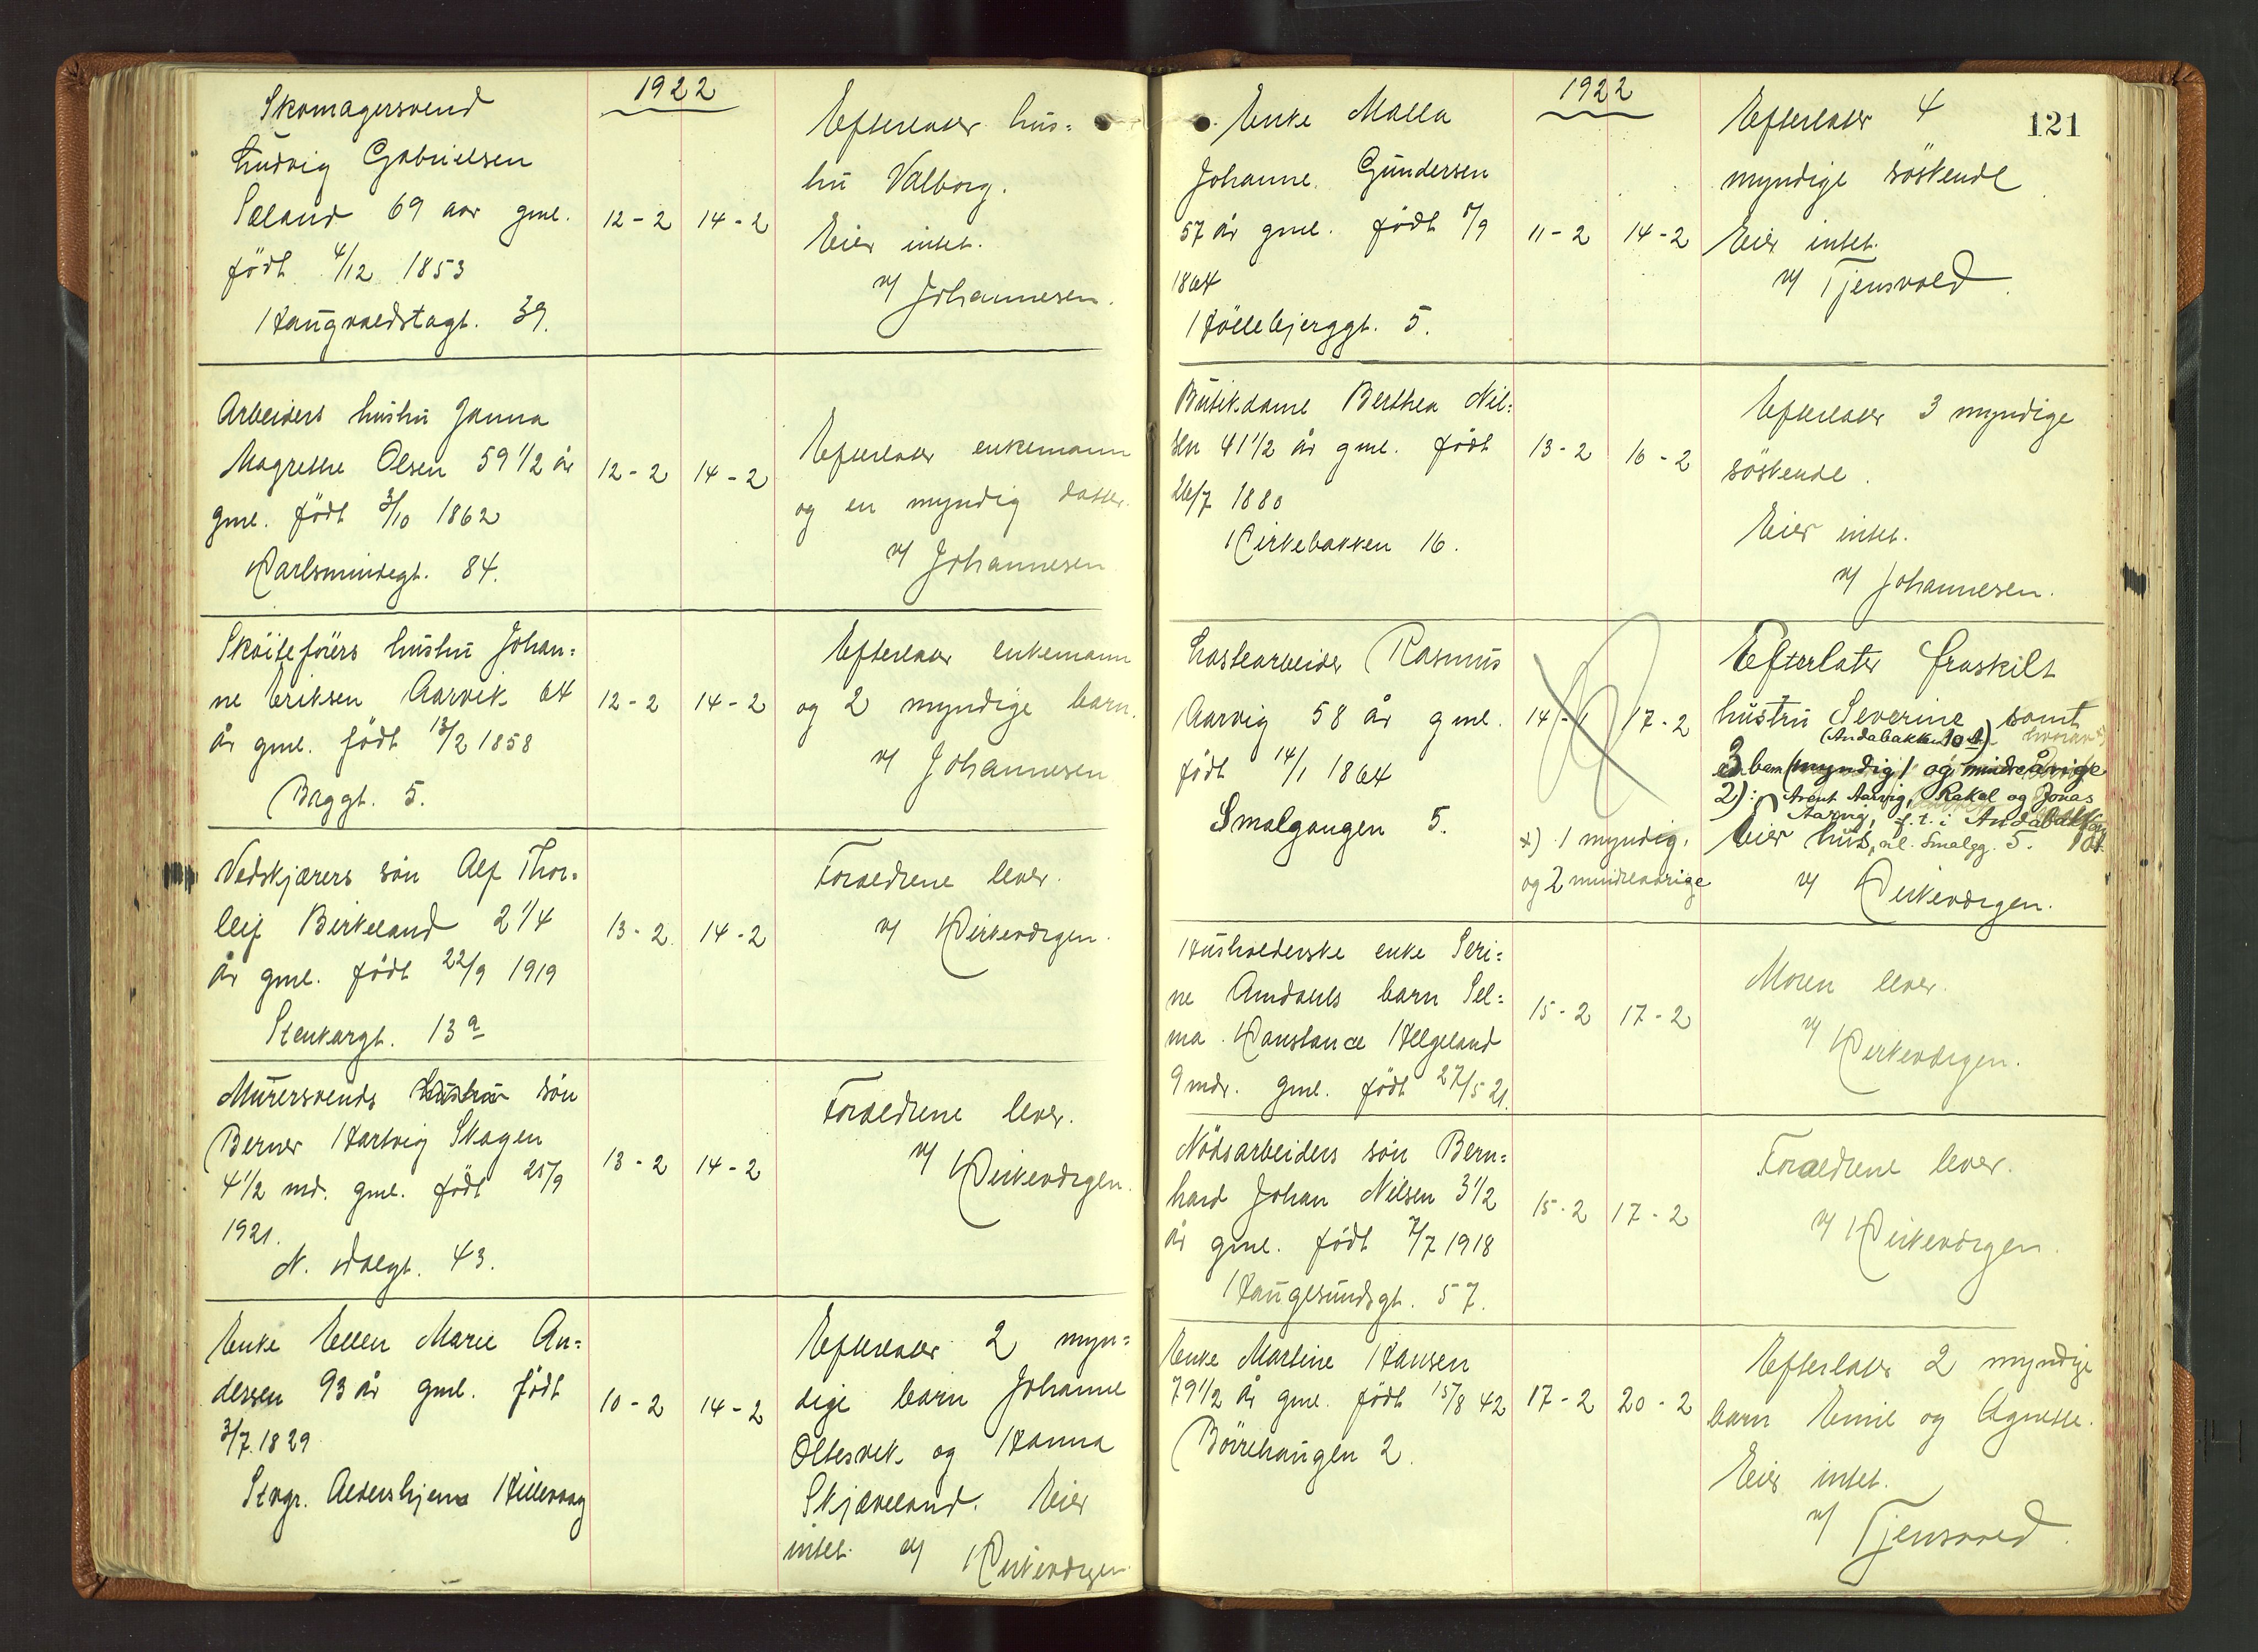 1922
Skomagersvend
Ludvig Gabrielsen
Sæland 69 aar gml.
født 4/12 1853
Haugvaldstagt. 39.
12-2 14-2
Efterlater hus=
tru Valborg.
Eier intet.
v/ Johannesen.
Arbeiders hustru Janna
Magrethe Olsen 59 1/2 år
gml. født 3/10 1862
Karlsmindegt. 84.
12-2 14-2
Efterlater enkemann
og en myndig datter.
v/ Johannesen
Skøiteførers hustru Johan=
ne Eriksen Aarvik 64
år gml. født 13/2 1858
Baggt. 5.
12-2 14-2
Efterlater enkemann
og 2 myndige barn.
v/ Johannesen
Vedskjærers søn Alf Thor=
leif Birkeland 2 1/4
år gml. født 22/9 1919
Stenkargt. 13a
13-2 14-2
Foraeldrene lever.
v/ Kirkeværgen.
Murersvends hustru søn
Berner Hartvig Skagen
4 1/2 md. gml. født 25/9
1921.
N. Dalgt. 43.
13-2 14-2
Foraeldrene lever.
v/ Kirkeværgen.
Enke Ellen Marie An=
dessen 93 år gml. født
3/7. 1829
Stvgr. Aldershjem Hillevaag
10-2 14-2
Efterlater 2 myn=
dige barn Johanne
Oltesvik og Hanna
Skjæveland. Eier
intet. v/ Kirkeværgen
1922
121
Enke Malla
Johanne Gundersen
57 år gml. født 8/9
1864
Høllebjerggt. 5.
11-2 14-2
Efterlater 4
myndige søskende
Eier intet.
v/ Tjensvold.
Butikdame Berthea Nil=
sen 41 1/2 år gml. født
26/7 1880
Kirkebakken 16.
13-2 16-2
Efterlater 3 myndige
søskende.
Eier intet.
v/ Johannesen.
Lastearbeider Rasmus
Aarvig 58 år gml.
født 14/1 1864
Smalgangen 5.
14-1 17-2
x) 1 myndig.
og 2 mindreaarige
Efterlater fraskilt
hustru Severine samt
(Andabakken 10 A) hvorav x)
3 barn (myndig) og mindreårige
2): Arent Aarvig, Rakel og Jonas
Aarvig, f.t. i Andabakken
Eier hus, al. Smalgg. 5. 10 A
v/ Kirkeværgen.
Husholderske enke Seri=
ne Amdals barn Sel=
ma Konstance Helgeland
9 mdr. gml. født 27/5 21.
15-2 17-2
Moren lever.
v/ Kirkeværgen.
Nødsarbeiders søn Bern=
hard Johan Nilsen 3 1/2
år gml. født 7/7 1918
Haugesundsgt. 57.
15-2 17-2
Foraeldrene lever.
v/ Kirkeværgen.
Enke Martine Hansen
79 1/2 år gml. født 15/8 42
Børrehaugen 2.
17-2 20-2
Efterlater 2 myndige
barn Emil og Agnethe.
Eier intet.
v/ Tjensvold